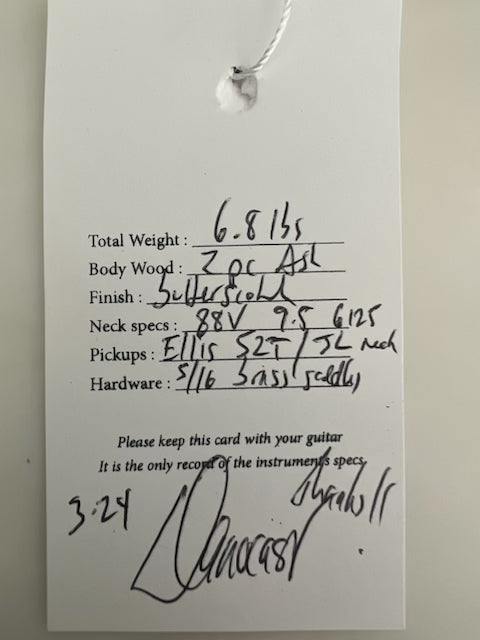 Total Weight : 6.8 lbs
Body Wood : 2 pc Ash
Finish : Butterscotch
Neck specs : 88V 9.5 6125
Pickups : Ellis 52T / JL neck
Hardware : 5/16 brass saddles
Please keep this card with your guitar
It is the only record of the instrument's specs
3.24
Thanks!!
Danocaster